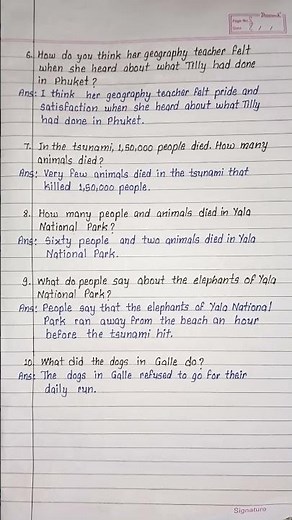 Page No.
Date
6. How do you think her geography teacher felt
when she heard about what Tilly had done
in Phuket?
Ans: I think her geography teacher felt pride and
satisfaction when she heard about what Tilly
had done in Phuket.
7. In the tsunami, 1,50,000 people died. How many
animals died?
Ans: Very few animals died in the tsunami that
killed 1,50,000 people.
8. How many people and animals died in Yala
National Park?
Ans: Sixty people and two animals died in Yala
National Park.
9. What do people say about the elephants of Yala
National Park?
Ans: People say that the elephants of Yala National
Park ran away from the beach an hour
before the tsunami hit.
10. What did the dogs in Galle do?
Ans: The dogs in Galle refused to go for their
daily run.
Signature